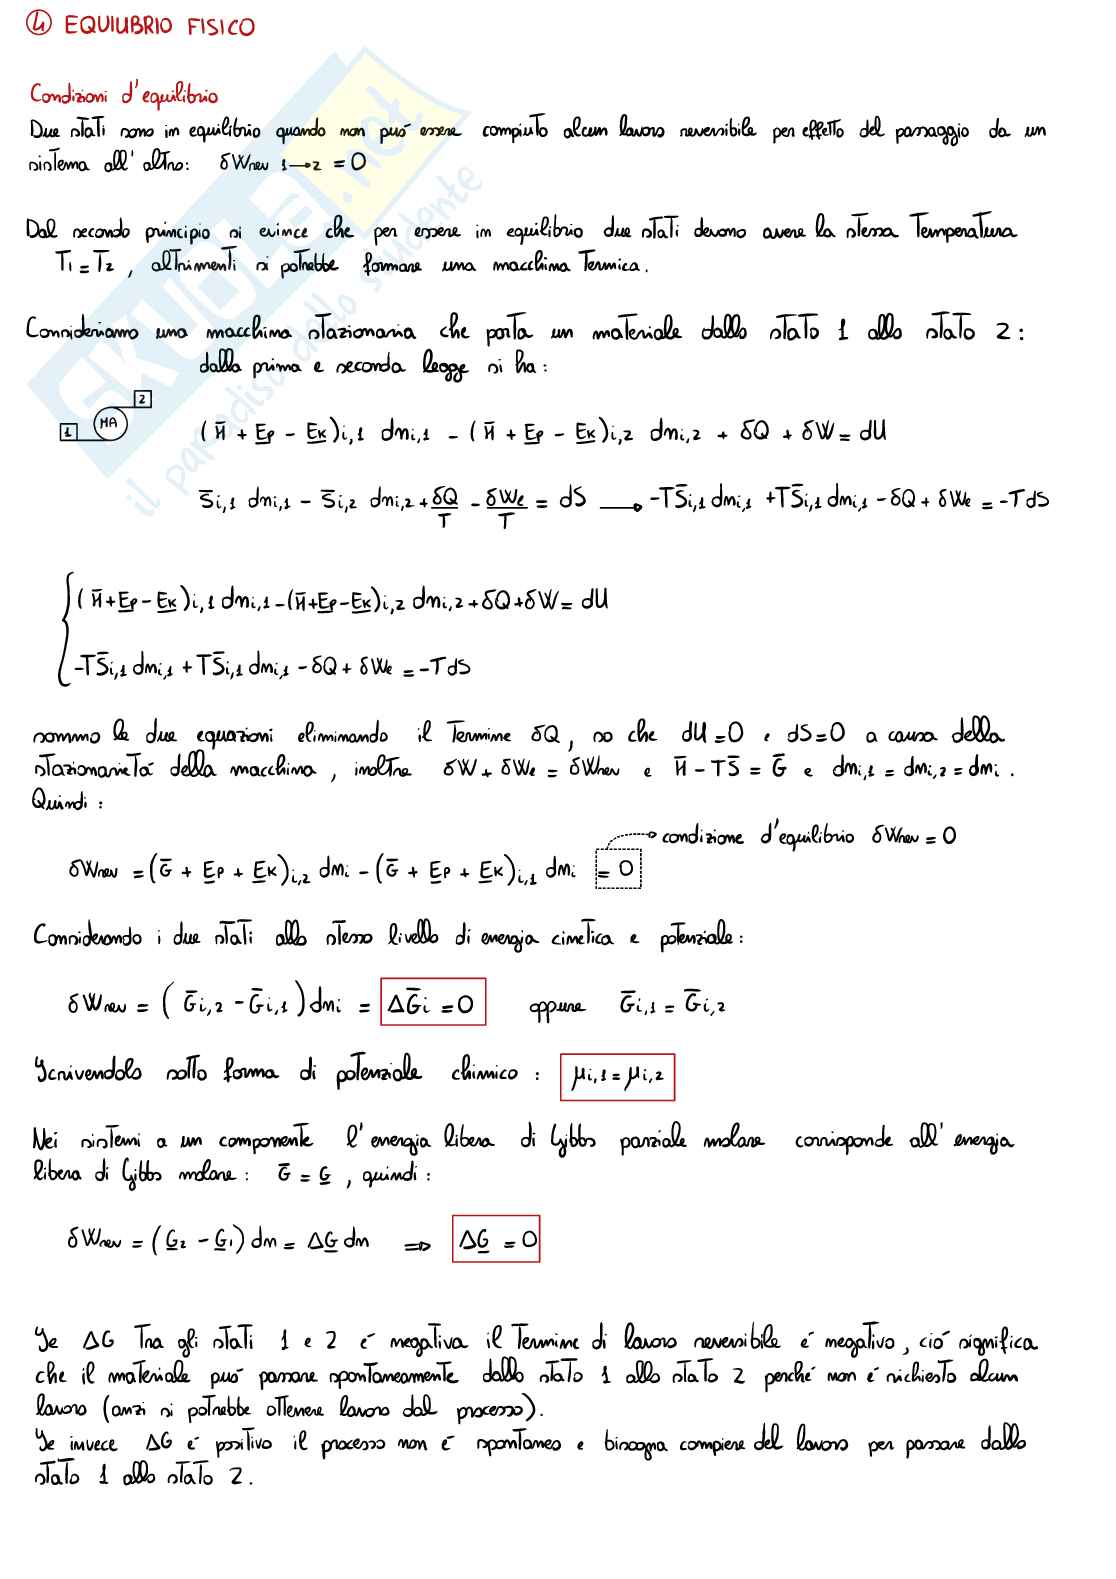 ④ EQUILIBRIO FISICO
Condizioni d'equilibrio
Due stati sono in equilibrio quando non può essere compiuto alcun lavoro reversibile per effetto del passaggio da un
sistema all'altro: δWrev 1→2 = 0
Dal secondo principio si evince che per essere in equilibrio due stati devono avere la stessa Temperatura
T₁ = T₂ , altrimenti si potrebbe formare una macchina Termica.
Consideriamo una macchina stazionaria che porta un materiale dallo stato 1 allo stato 2 :
dalla prima e seconda legge si ha :
1 MA 2
(H̅ + E̲p - E̲k)i,1 dni,1 - (H̅ + E̲p - E̲k)i,2 dni,2 + δQ + δW = dU
S̅i,1 dni,1 - S̅i,2 dni,2 + δQ/T - δWe/T = dS → -TS̅i,1 dni,1 + TS̅i,1 dni,1 - δQ + δWe = -TdS
{ (H̅+E̲p-E̲k)i,1 dni,1 - (H̅+E̲p-E̲k)i,2 dni,2 + δQ + δW = dU
-TS̅i,1 dni,1 + TS̅i,1 dni,1 - δQ + δWe = -TdS
sommo le due equazioni eliminando il Termine δQ, so che dU=0 e dS=0 a causa della
stazionarietá della macchina , inoltre δW + δWe = δWrev e H̅ - TS̅ = G̅ e dni,1 = dni,2 = dni .
Quindi :
condizione d'equilibrio δWrev = 0
δWrev = (G̅ + E̲p + E̲k)i,2 dni - (G̅ + E̲p + E̲k)i,1 dni = 0
Considerando i due stati allo stesso livello di energia cinetica e potenziale :
δWrev = ( G̅i,2 - G̅i,1 ) dni = ΔG̅i = 0 oppure G̅i,1 = G̅i,2
Scrivendolo sotto forma di potenziale chimico : μi,1 = μi,2
Nei sistemi a un componente l'energia libera di Gibbs parziale molare corrisponde all'energia
libera di Gibbs molare : G̅ = G̲ , quindi :
δWrev = (G̲₂ - G̲₁) dn = ΔG̲ dn ⇒ ΔG̲ = 0
Se ΔG Tra gli stati 1 e 2 é negativa il Termine di lavoro reversibile é negativo, ció significa
che il materiale puó passare spontaneamente dallo stato 1 allo stato 2 perché non é richiesto alcun
lavoro (anzi si potrebbe ottenere lavoro dal processo).
Se invece ΔG é positivo il processo non é spontaneo e bisogna compiere del lavoro per passare dallo
stato 1 allo stato 2 .
SKUOLA.net
il paradiso dello studente